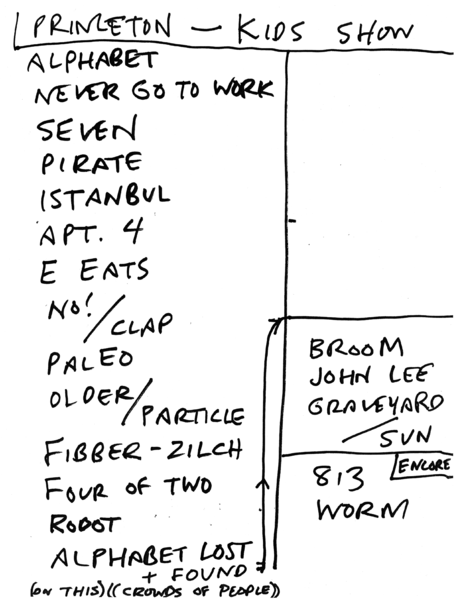 PRINCETON — KIDS SHOW
ALPHABET
NEVER GO TO WORK
SEVEN
PIRATE
ISTANBUL
APT. 4
E EATS
NO!
/CLAP
PALEO
OLDER/PARTICLE
FIBBER-ZILCH
FOUR OF TWO
ROBOT
ALPHABET LOST
+ FOUND
(ON THIS)((CROWDS OF PEOPLE))
BROOM
JOHN LEE
GRAVEYARD
/SUN
ENCORE
813
WORM